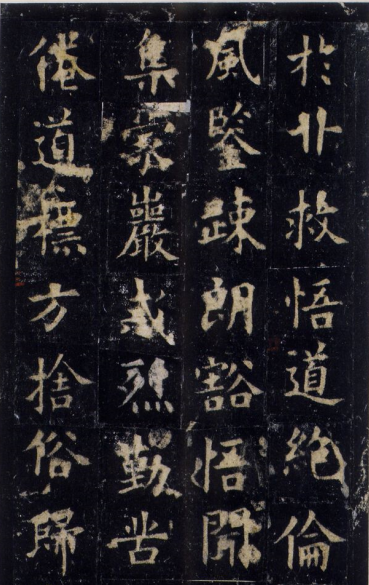 於救悟道絶倫
風鑒疎朗豁悟
集巖烈勤苦
倦道標方捨俗歸